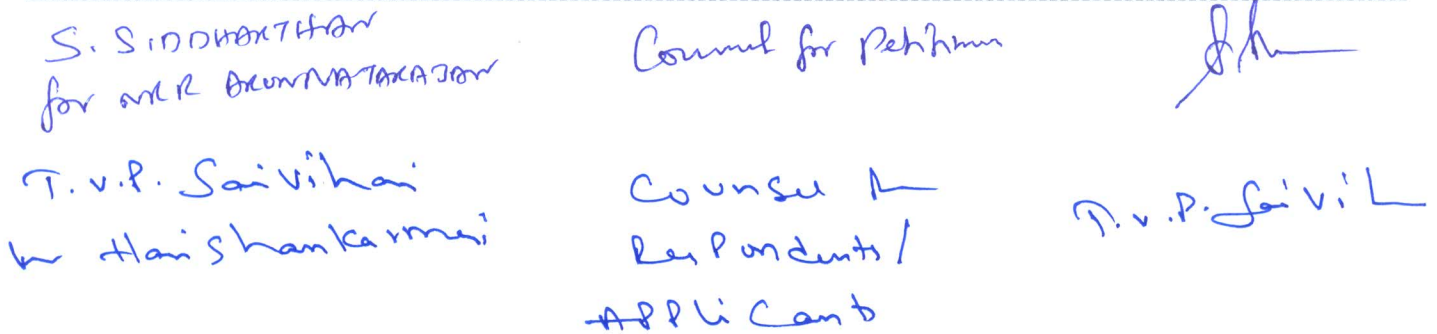 S. SIDDHARTHAN
for MR R ARUN NATARAJAN
Counsel for Petitioner
T.V.P. Sai Vihari
Hari Shankar Mani
Counsel for
Respondents/
Applicants
T.V.P. Sai Vih